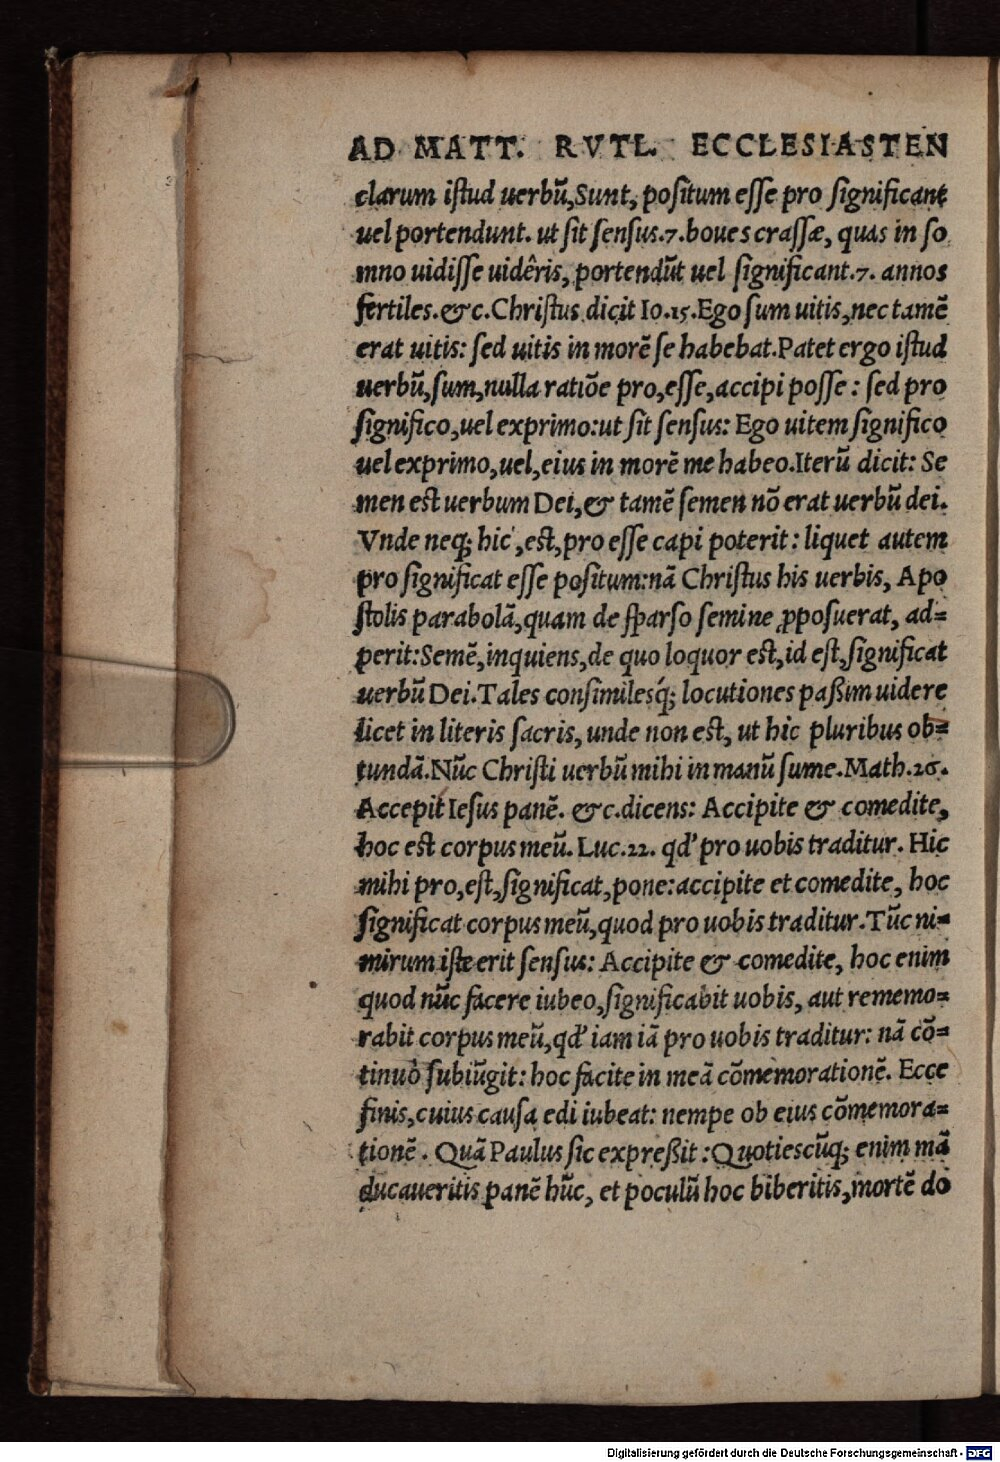 AD MATT. RVTL. ECCLESIASTEN
clarum istud uerbũ,Sunt, positum esse pro significant
uel portendunt. ut sit sensus.7.boues crassæ, quas in so
mno uidisse uidêris, portendũt uel significant.7. annos
fertiles.&c.Christus dicit Io.15.Ego sum uitis,nec tamẽ
erat uitis: sed uitis in morẽ se habebat.Patet ergo istud
uerbũ,sum,nulla ratiõe pro,esse,accipi posse : sed pro
significo,uel exprimo:ut sit sensus: Ego uitem significo
uel exprimo,uel,eius in morẽ me habeo.Iterũ dicit: Se
men est uerbum Dei,& tamẽ semen nõ erat uerbũ dei.
Vnde neq; hic ,est,pro esse capi poterit : liquet autem
pro significat esse positum:nã Christus his uerbis, Apo
stolis parabolã,quam de sparso semine ꝓposuerat, ad=
perit:Semẽ,inquiens,de quo loquor est,id est,significat
uerbũ Dei.Tales consimilesq́; locutiones paßim uidere
licet in literis sacris, unde non est, ut hic pluribus ob=
tundã.Nũc Christi uerbũ mihi in manũ sume.Math.26.
Accepit Iesus panẽ. &c.dicens: Accipite & comedite,
hoc est corpus meũ. Luc.22. qd' pro uobis traditur. Hic
mihi pro,est,significat,pone:accipite et comedite, hoc
significat corpus meũ,quod pro uobis traditur.Tũc ni=
mirum iste erit sensus: Accipite & comedite, hoc enim
quod nũc facere iubeo,significabit uobis, aut rememo=
rabit corpus meũ,qd' iam iã pro uobis traditur: nã cõ=
tinuò subiũgit: hoc facite in meã cõmemorationẽ. Ecce
finis,cuius causa edi iubeat: nempe ob eius cõmemora=
tionẽ . Quã Paulus sic expreßit :Quotiescũq; enim mã
ducaueritis panẽ hũc, et poculũ hoc biberitis,mortẽ do
Digitalisierung gefördert durch die Deutsche Forschungsgemeinschaft - DFG